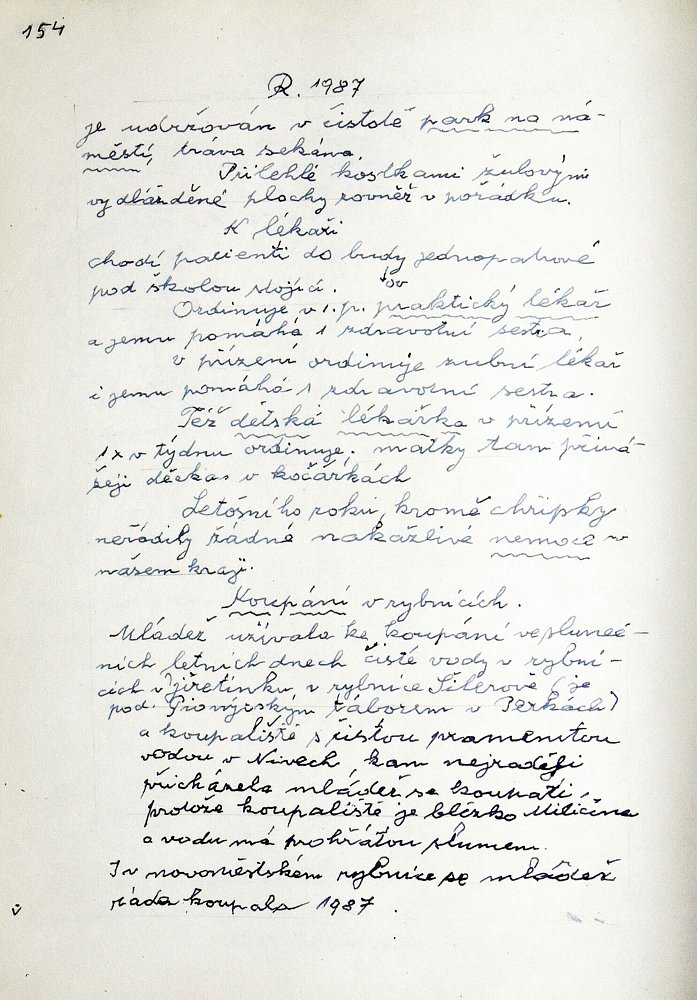 154
R. 1987
je udržován v čistotě park na ná-
městí, tráva sekána.
Přilehlé kostkami žulovými
vydlážděné plochy rovněž v pořádku.
K lékaři
chodí pacienti do budy jednopatrové
pod školou stojící.
Ordinuje v 1. p. praktický lékař
a jemu pomáhá 1 zdravotní sestra,
v přízení ordinuje zubní lékař
i jemu pomáhá 1 zdravotní sestra.
Též dětská lékařka v přízemí
1x v týdnu ordinuje; matky tam přiná-
šejí děcka v kočárkách
Letošního roku, kromě chřipky
neřádily žádné nakažlivé nemoce v
našem kraji.
Koupání v rybnících.
Mládež užívala ke koupání ve sluneč-
ních letních dnech čisté vody v rybní-
cích v Jiřetínku, v rybníce Silerově (je
pod Pionýrským táborem v Perkách)
a koupaliště s čistou pramenitou
vodou v Nivech, kam nejraději
přicházela mládež se koupati,
protože koupaliště je blízko Miličína
a vodu má prohřátou sluncem.
I v novoměstském rybníce se mládež
ráda koupala 1987.
v